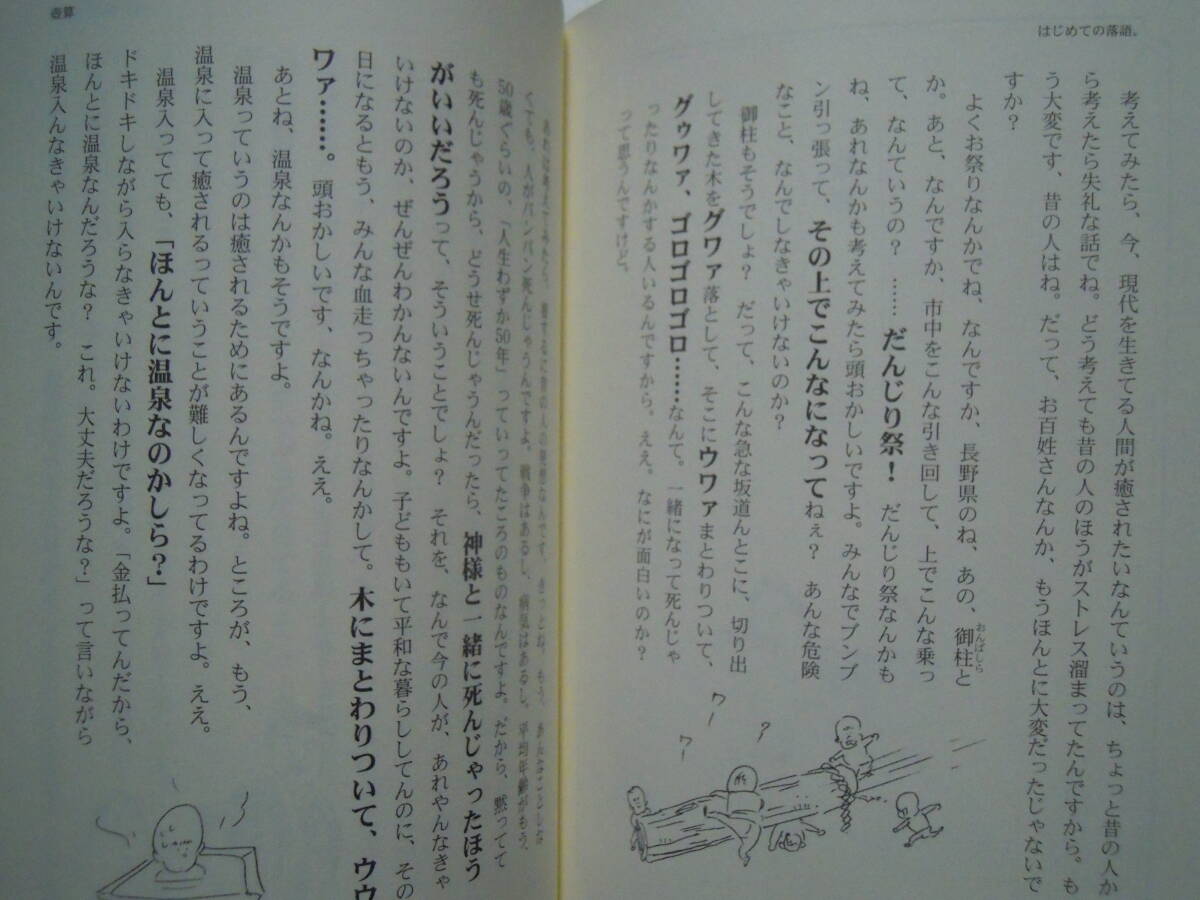 はじめての落語。
考えてみたら、今、現代を生きてる人間が癒されたいなんていうのは、ちょっと昔の人か
ら考えたら失礼な話でね。どう考えても昔の人のほうがストレス溜まってたんですから。も
う大変です、昔の人はね。だって、お百姓さんなんか、もうほんとに大変だったじゃないで
すか？
よくお祭りなんかでね、なんですか、長野県のね、あの、御柱と
おんばしら
か。あと、なんですか、市中をこんな引き回して、上でこんな乗っ
て、なんていうの？　……だんじり祭！　だんじり祭なんかも
ね、あれなんかも考えてみたら頭おかしいですよ。みんなでブンブ
ン引っ張って、その上でこんなになってねぇ？　あんな危険
なこと、なんでしなきゃいけないのか？
御柱もそうでしょ？　だって、こんな急な坂道んとこに、切り出
してきた木をグワァ落として、そこにウワァまとわりついて、
グゥワァ、ゴロゴロゴロ……なんて。一緒になって死んじゃ
ったりなんかする人いるんですから。ええ。なにが面白いのか？
って思うんですけど。
ワー
ワー
？
壺算
くても、人がバンバン死んじゃうんですよ。戦争はあるし、病気はあるし、平均年齢がもう、
50歳ぐらいの、「人生わずか50年」っていってたころのものなんですよ。だから、黙ってて
も死んじゃうから、どうせ死んじゃうんだったら、神様と一緒に死んじゃったほう
がいいだろうって、そういうことでしょ？　それを、なんで今の人が、あれやんなきゃ
いけないのか、ぜんぜんわかんないんですよ。子どももいて平和な暮らししてんのに、その
日になるともう、みんな血走っちゃったりなんかして。木にまとわりついて、ウウ
ワァ……。頭おかしいです、なんかね。ええ。
あとね、温泉なんかもそうですよ。
温泉っていうのは癒されるためにあるんですよね。ところが、もう、
温泉に入って癒されるっていうことが難しくなってるわけですよ。ええ。
温泉入ってても、「ほんとに温泉なのかしら？」
ドキドキしながら入らなきゃいけないわけですよ。「金払ってんだから、
ほんとに温泉なんだろうな？　これ。大丈夫だろうな？」って言いながら
温泉入んなきゃいけないんです。